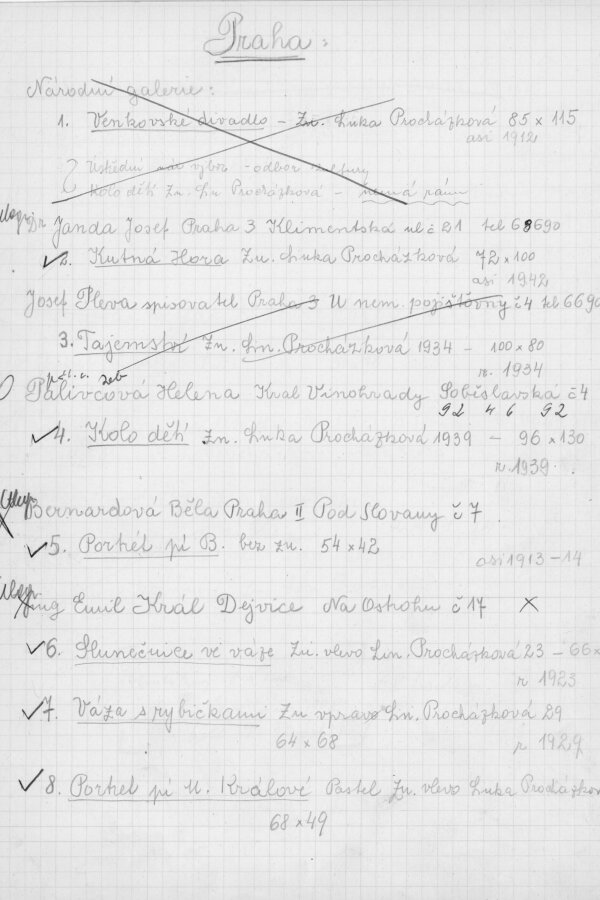 Praha:
Národní galerie:
1. Venkovské divadlo - Zn. Linka Procházková 85 x 115
asi 1912
Ústřední nár výbor - odbor kultury
Kolo dětí Zn. Ln Procházková - nemá rámu
Dr Janda Josef Praha 3 Klimentská ul č 21 tel 68690
2. Kutná Hora Zn. Linka Procházková 72 x 100
asi 1942
Josef Pleva spisovatel Praha 3 U nem. pojišťovny č 4 tel 6690
3. Tajemství Zn. Lin. Procházková 1934 - 100 x 80
r. 1934
Palivcová Helena Král Vinohrady Soběslavská č 4
92 46 92
4. Kolo dětí Zn. Linka Procházková 1939 - 96 x 130
r. 1939.
Bernardová Běla Praha II Pod Slovany č 7
5. Portrét pí B. bez zn. 54 x 42
asi 1913-14
Ing Emil Král Dejvice Na Ostrohu č 17 x
6. Slunečnice ve váze Zn. vlevo Lin. Procházková 23 - 66 x
r 1923
7. Váza s rybičkami Zn vpravo Ln. Procházková 29
64 x 68 r 1929
8. Portrét pí M. Králové Pastel Zn. vlevo Linka Procházkov
68 x 49